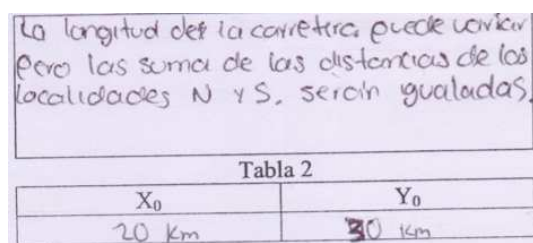 La longitud del la carretera puede variar
pero las suma de las distancias de las
localidades N y S. serán igualadas.
Tabla 2
X₀ Y₀
20 Km 30 Km